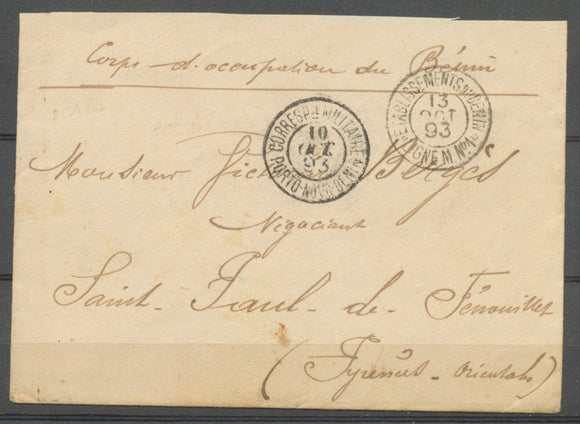 Corps d'occupation du Bénin
ETABLISSEMENTS DU BENIN
13
OCT
93
LIGNE N N°1
CORRESP. MILITAIRE
10
OCT
93
PORTO-NOVO-BENIN
Monsieur Bergès
Négociant
Saint-Paul-de-Fénouillet
(Pyrénées-Orientales)